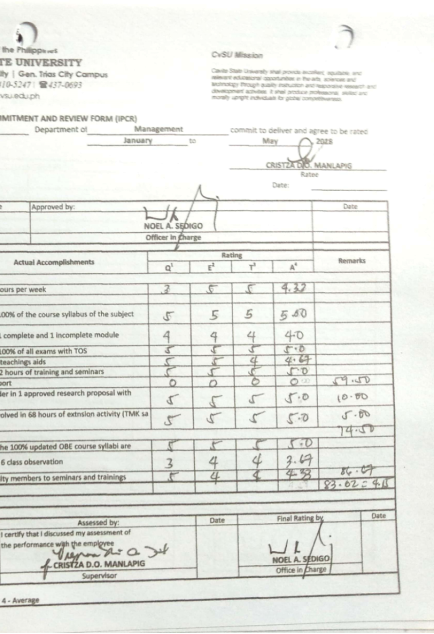 the Philippines
TE UNIVERSITY
ity | Gen. Trias City Campus
☎437-0693
vsu.edu.ph
CvSU Mission
Cavite State University shall provide excellent, equitable and
relevant educational opportunities in the arts, sciences and
technology through quality instruction and responsive research and
development activities. It shall produce professional, skilled and
morally upright individuals for global competitiveness.
MITMENT AND REVIEW FORM (IPCR)
Department of Management commit to deliver and agree to be rated
January to May
CRISTZA D.O. MANLAPIG
Ratee
Date:
Approved by: Date
NOEL A. SEDIGO
Officer in Charge
Actual Accomplishments Rating Remarks
Q¹ E² T³ A⁴
ours per week 3 5 5 4.33
100% of the course syllabus of the subject 5 5 5 5.00
complete and 1 incomplete module 4 4 4 4.0
100% of all exams with TOS 5 5 5 5.0
teachings aids 5 5 4 4.67
2 hours of training and seminars 5 5 5 5.0
ort 0 0 0 0 59.50
er in 1 approved research proposal with 5 5 5 5.0 10.00
olved in 68 hours of extnsion activity (TMK sa 5 5 5 5.0 5.00
74.50
the 100% updated OBE course syllabi are 5 5 5 5.0
6 class observation 3 4 4 3.67
lty members to seminars and trainings 5 4 4 4.33
Assessed by: Date Final Rating by Date
I certify that I discussed my assessment of
the performance with the employee
CRISTZA D.O. MANLAPIG
Supervisor
NOEL A. SEDIGO
Office in Charge
4 - Average